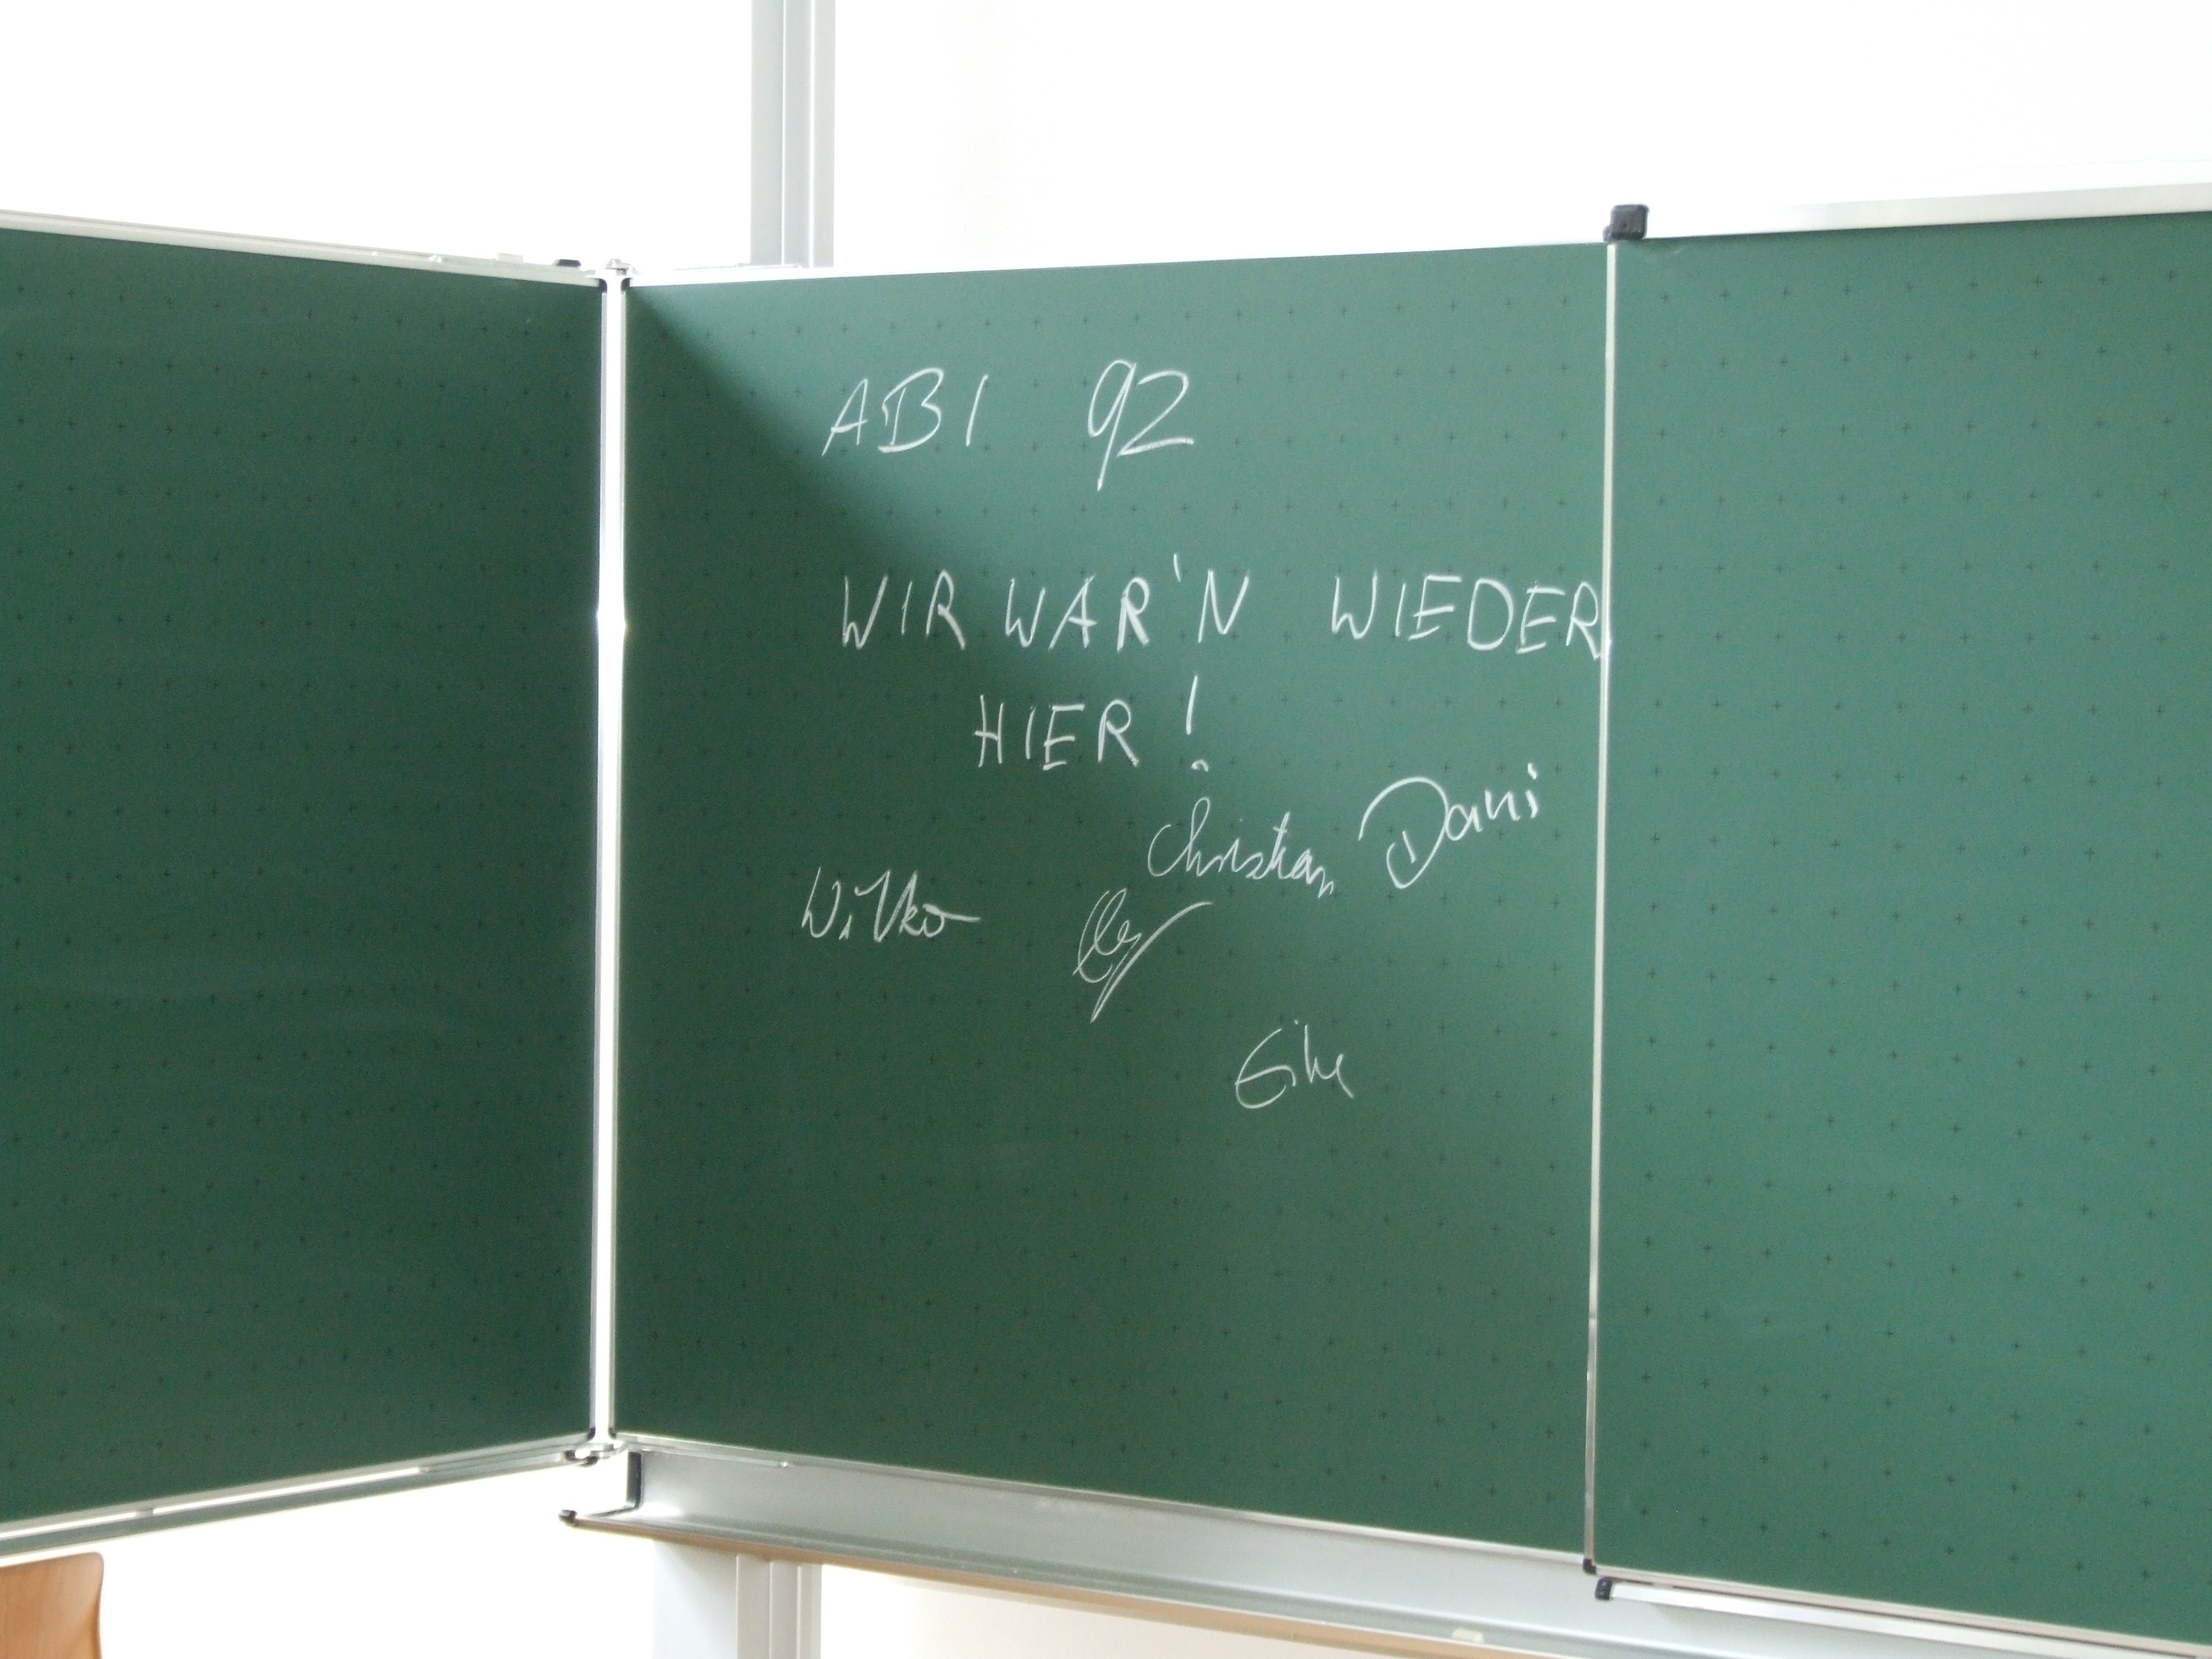 ABI 92
WIR WAR'N WIEDER
HIER!
Christian Dani
Wilko
Eike